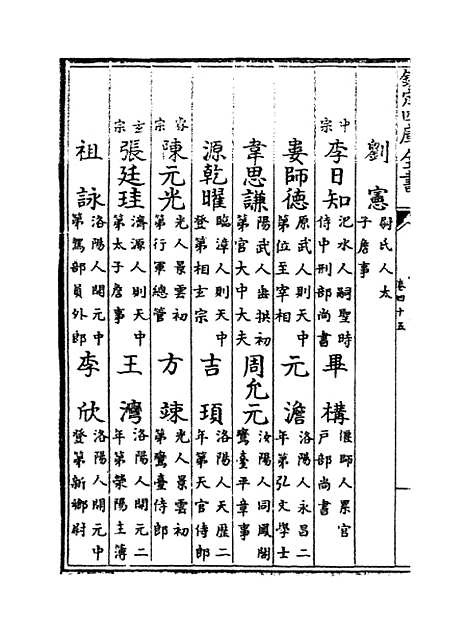 欽定四庫全書
卷四十五
劉憲 尉氏人太子詹事
中宗 李日知 汜水人嗣聖時侍中刑部尚書 畢構 偃師人累官户部尚書
婁師德 原武人則天中第位至宰相 元澹 洛陽人永昌二年第弘文學士
韋思謙 陽武人垂拱初第官大中大夫 周允元 汝陽人同鳳閣鸞臺平章事
源乾曜 臨漳人則天中登第相玄宗 吉頊 洛陽人天歴二年第天官侍郎
睿宗 陳元光 光人景雲初第行軍總管 方竦 光人景雲初第鸞臺侍郎
玄宗 張廷珪 濟源人則天中第太子詹事 王灣 洛陽人開元二年第滎陽主簿
祖詠 洛陽人開元中第駕部員外郎 李欣 洛陽人開元中登第新鄉尉